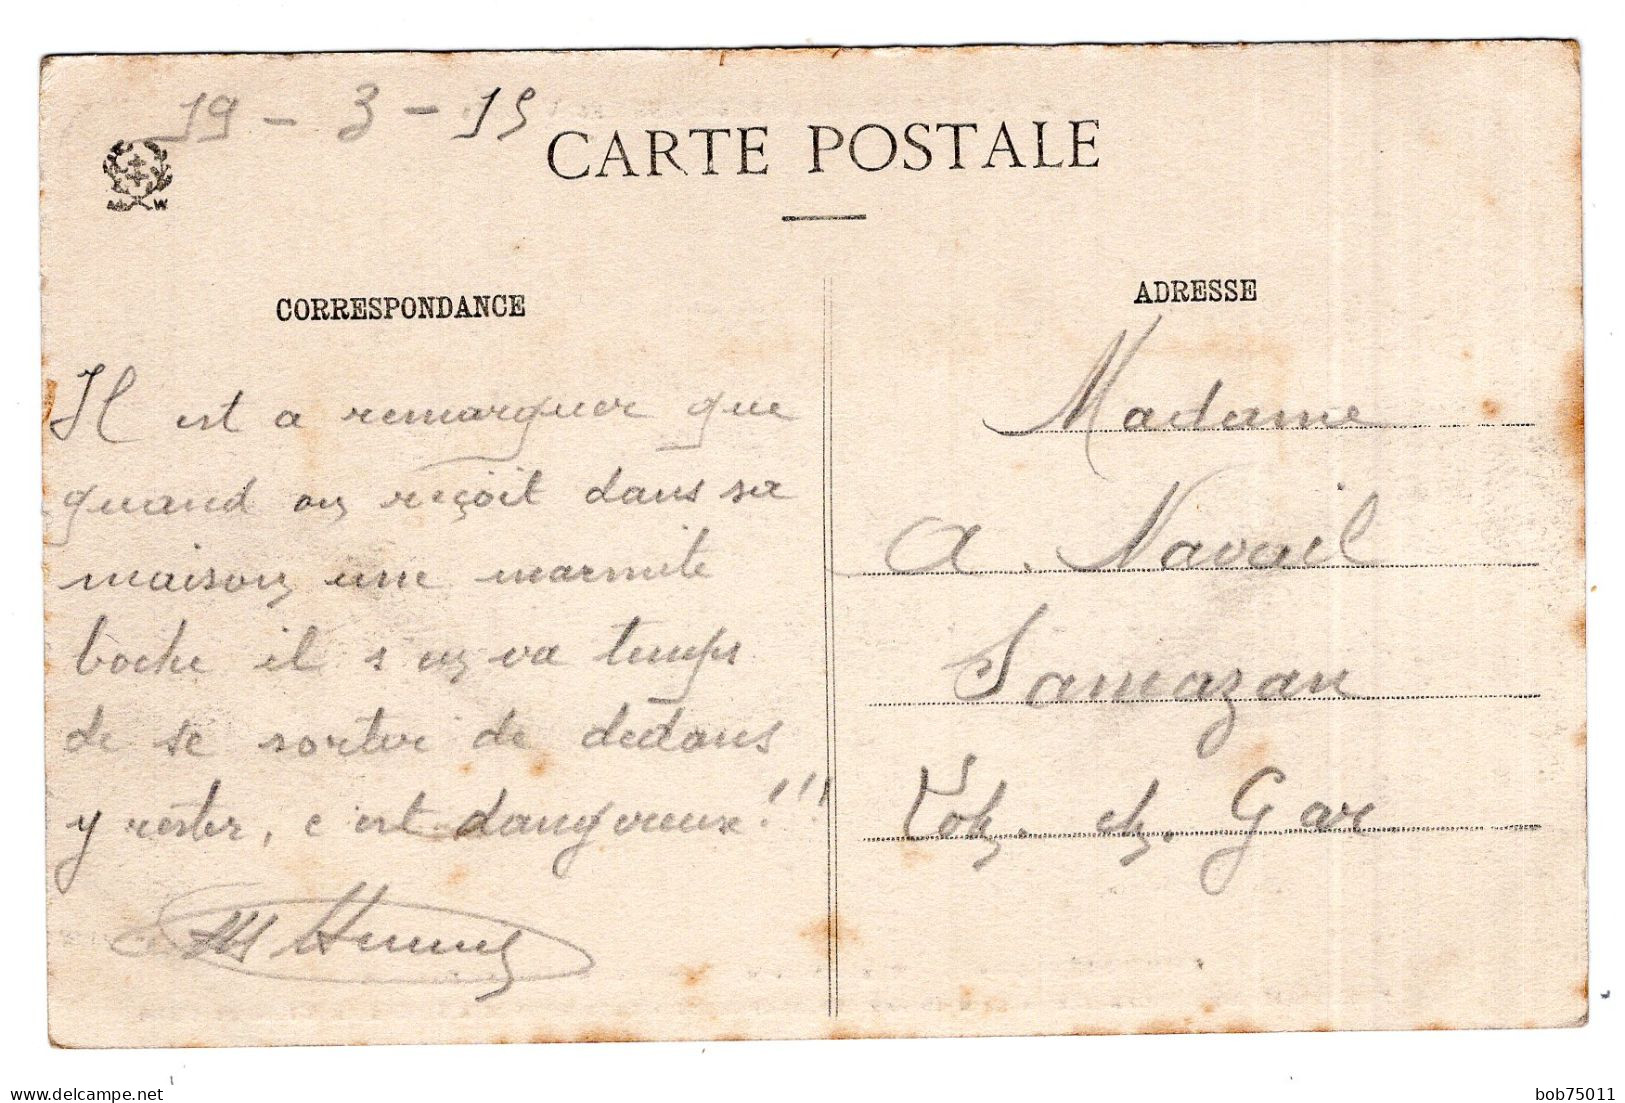 19 - 3 - 15
CARTE POSTALE
CORRESPONDANCE
Il est a remarquer que
quand on reçoit dans sa
maison une marmite
boche il s'en va temps
de se sortir de dedans
y rester, c'est dangereux!!!
ADRESSE
Madame
A. Navail
Samazan
Lot. et. Gar
delcampe.net
bob75011